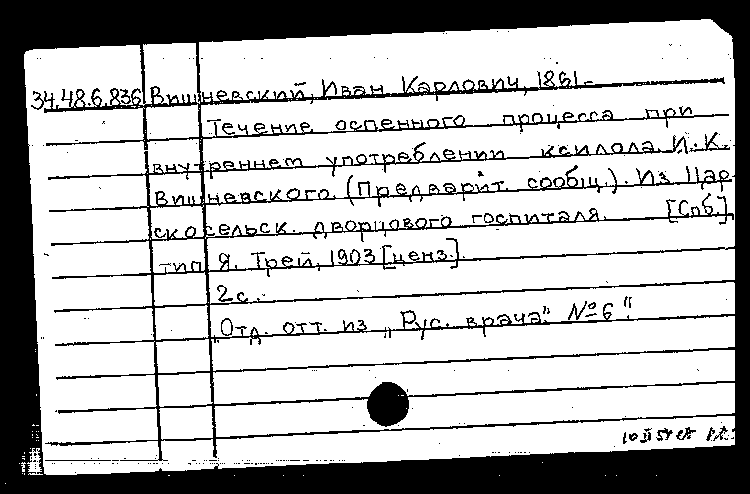 34.48.6.836 Вишневский, Иван Карлович, 1861-
Течение оспенного процесса при
внутреннем употреблении ксилола И. К.
Вишневского. (Предварит. сообщ.). Из Цар
скосельск. дворцового госпиталя. [Спб.],
тип Я. Трей, 1903 [ценз.].
2 с.
"Отд. отт. из „Рус. врача" № 6".